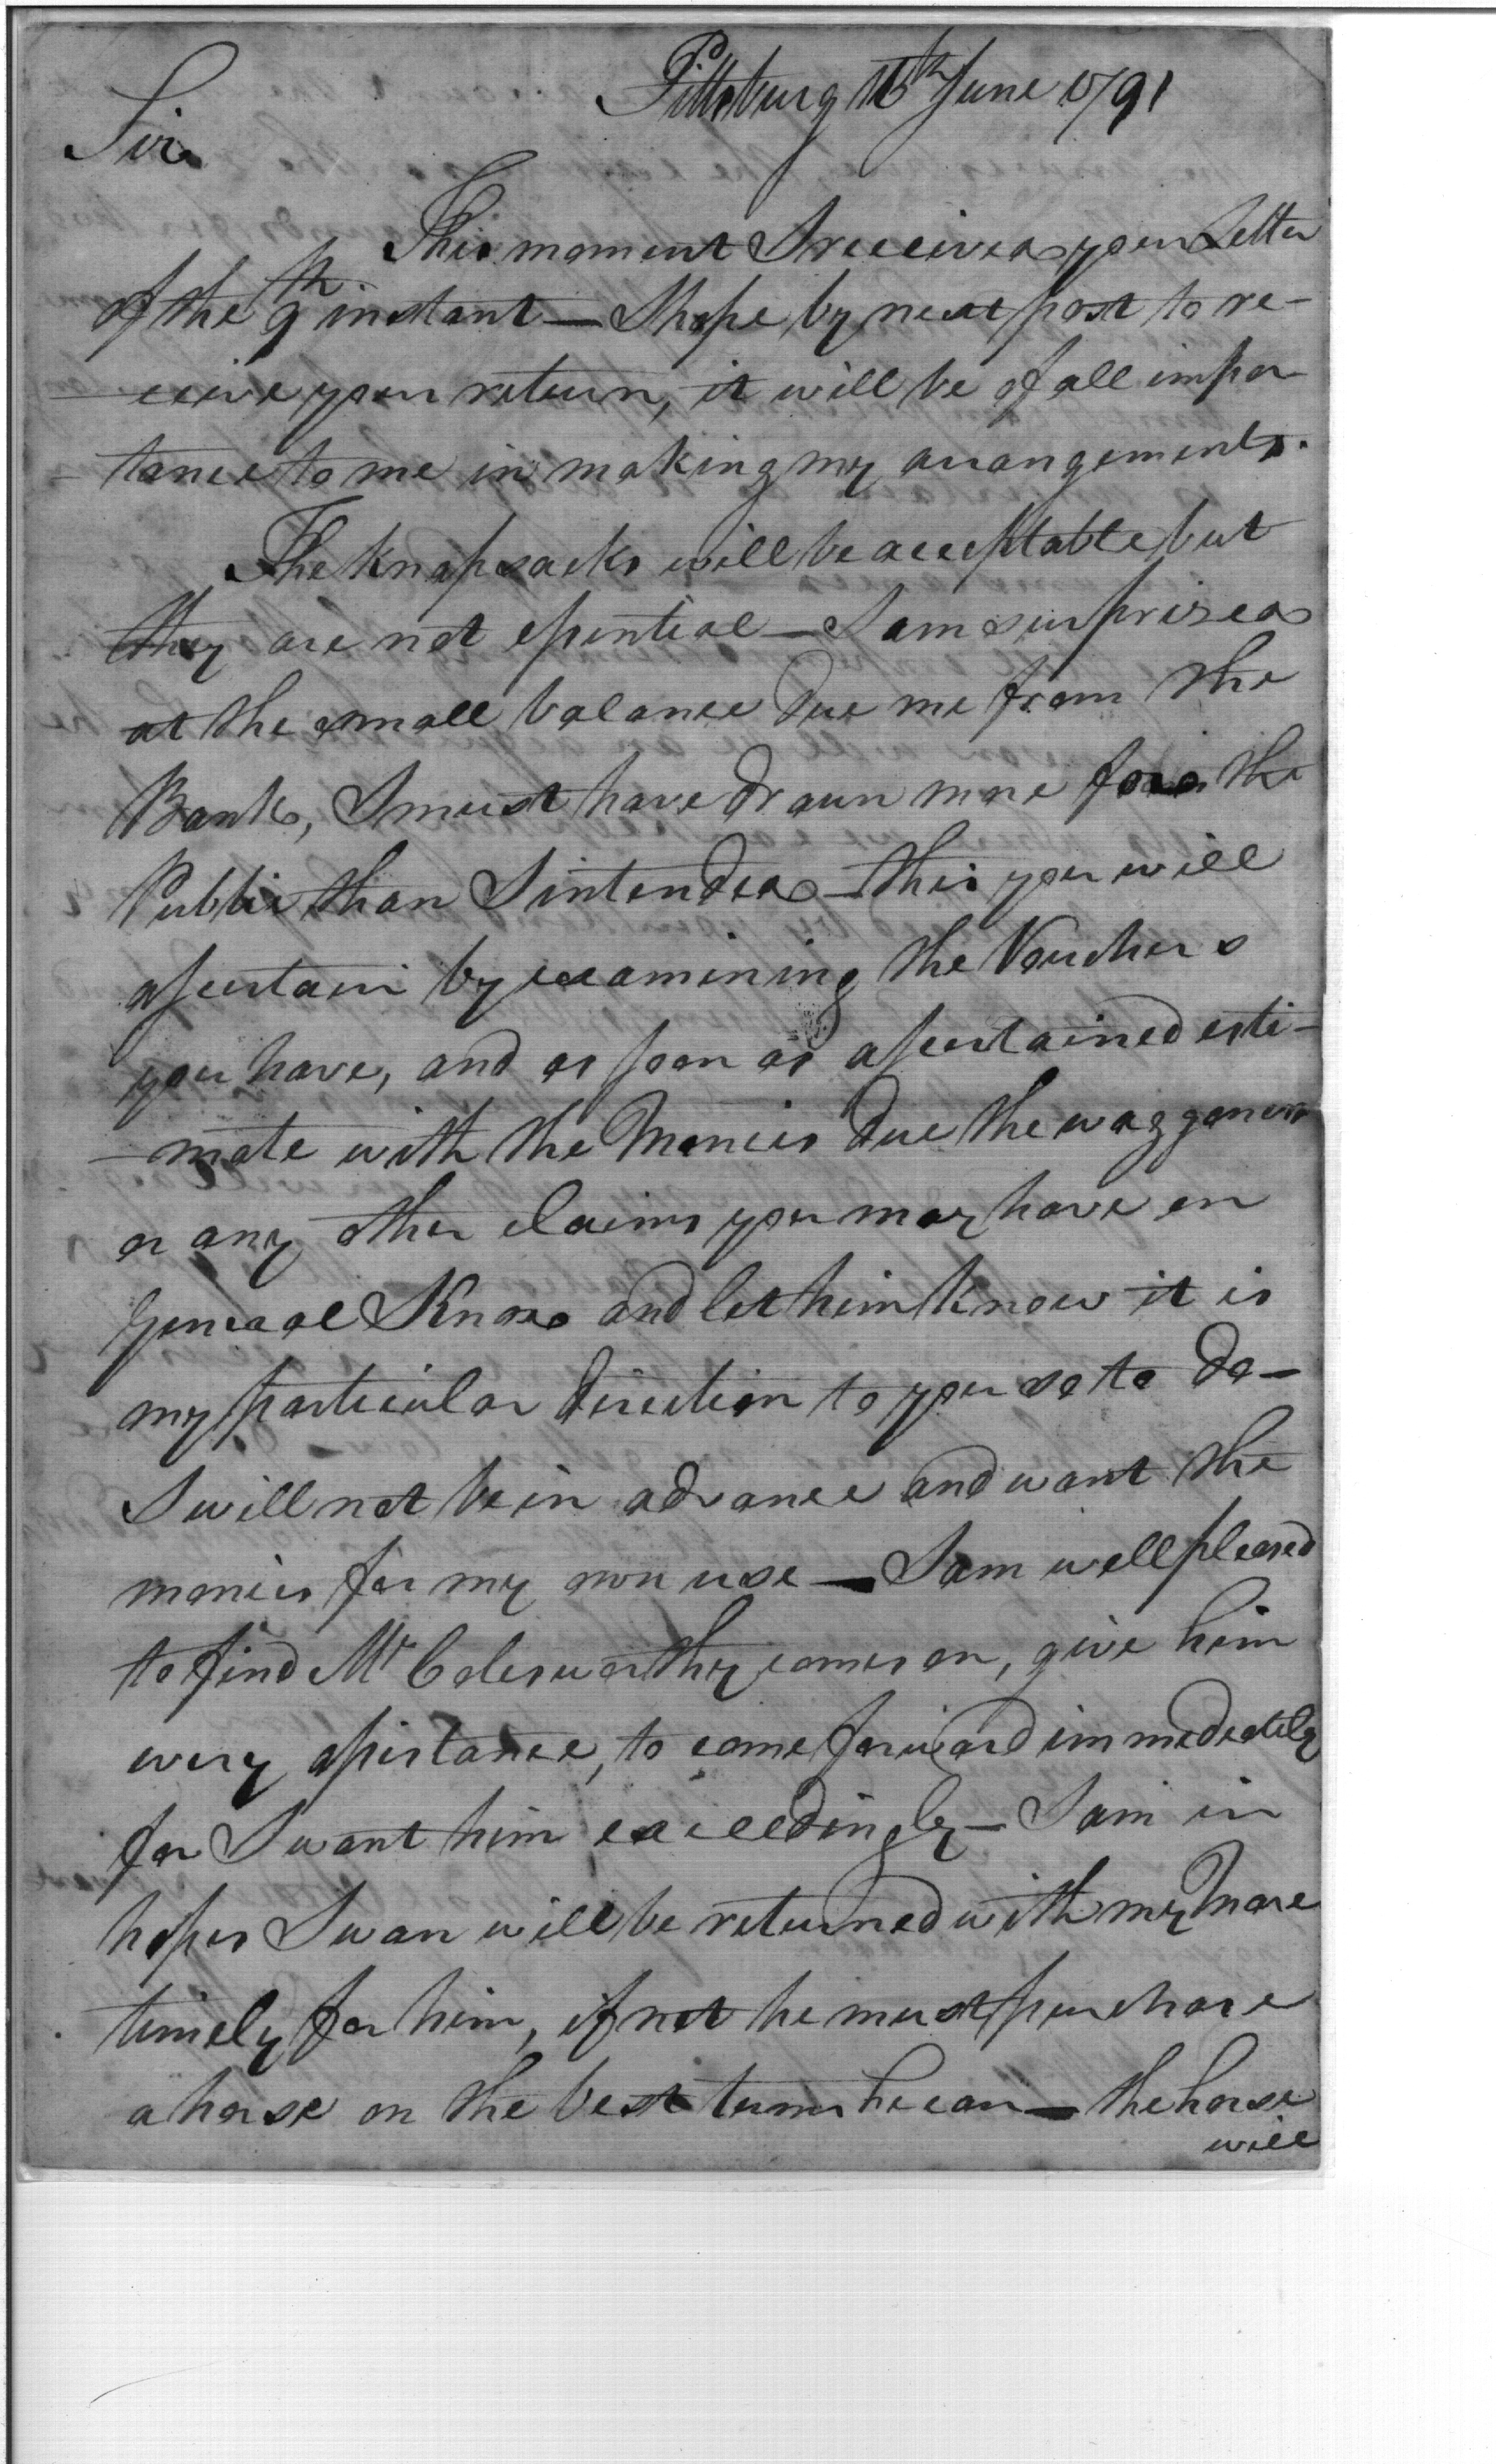 Pittsburg 16th June 1791
Sir
This moment I received your Letter
of the 9th instant — I hope by next post to re-
-ceive your return, it will be of all impor
-tance to me in making my arrangements.
The knapsacks will be acceptable but
they are not essential — I am surprized
at the small balance due me from the
Bank, I must have drawn more for the
Public than I intended — this you will
assertain by examining the Vouchers
you have, and as soon as assertained esti-
-mate with the Monies due the waggoners
or any other claims you may have on
General Knox and let him know it is
my particular direction to you so to do —
I will not be in advance and want the
monies for my own use — I am well pleased
to find Mr Colesworthy comes on, give him
every assistance, to come forward immediately
for I want him exceedingly — I am in
hopes Swan will be returned with my Mare
timely for him, if not he must purchase
a horse on the best terms he can — the horse
will